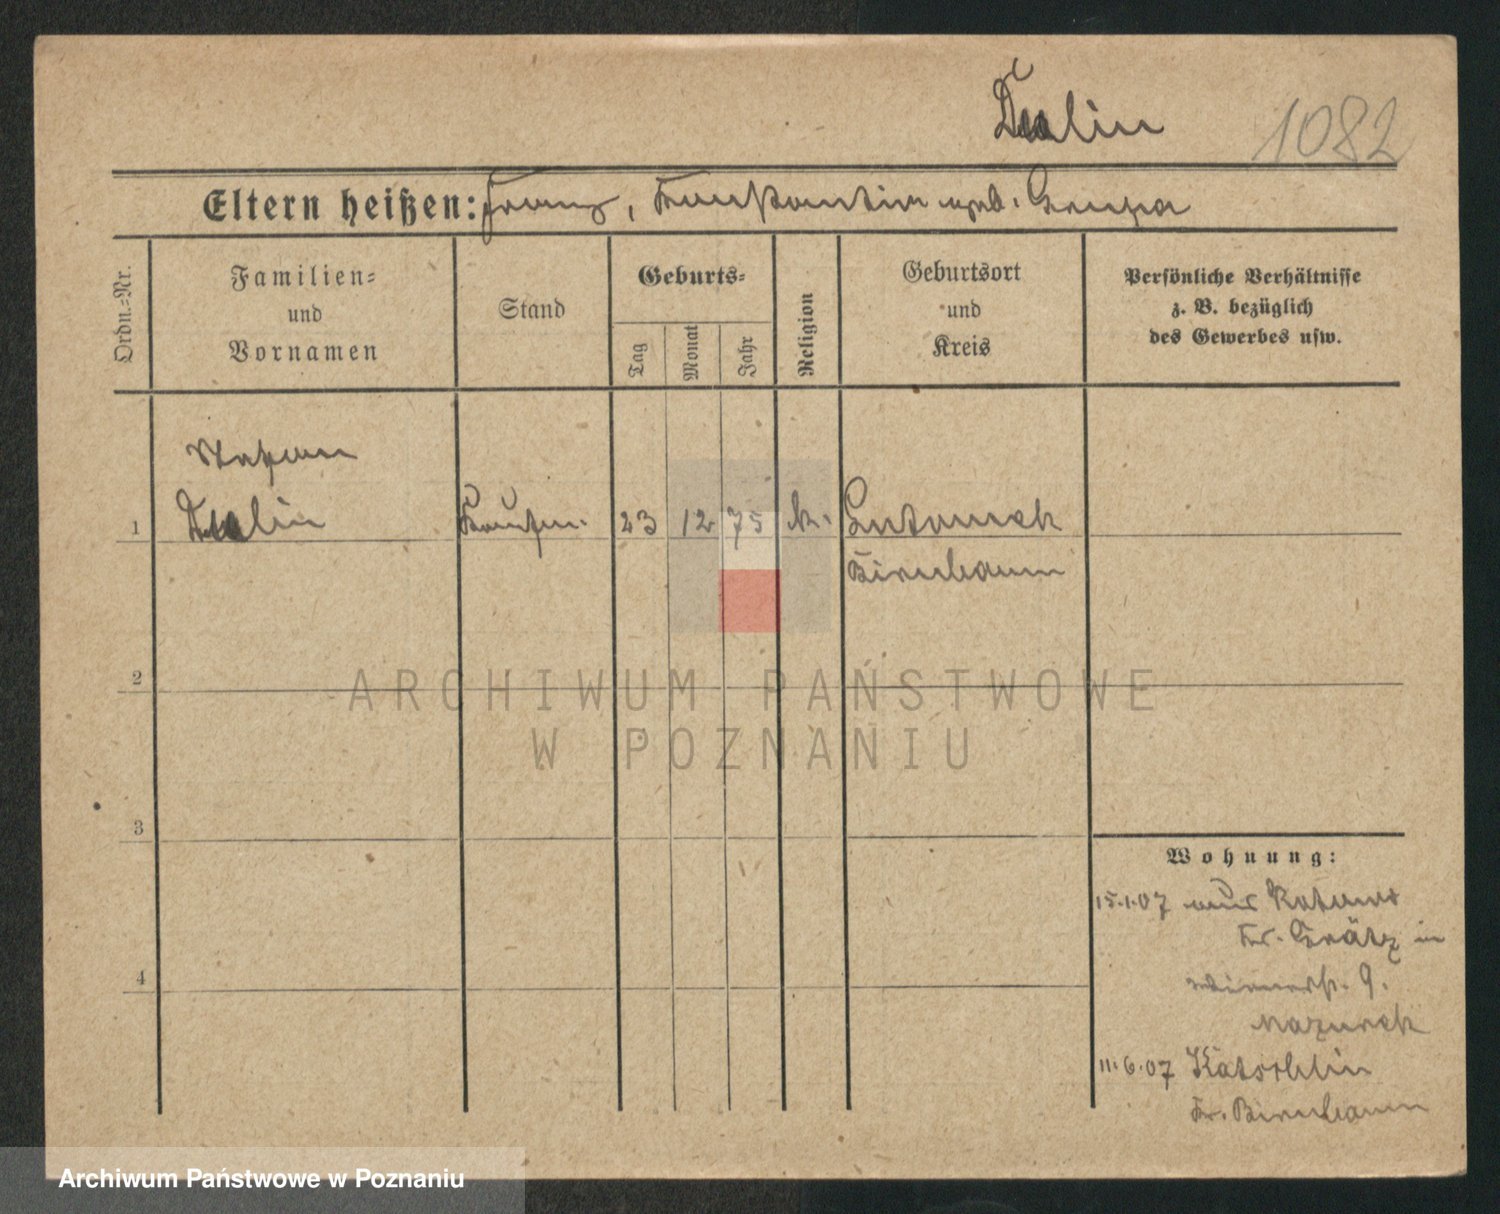 1082
Eltern heißen: Franz,
Ordn.=Nr.
Familien=
und
Vornamen
Stand
Geburts=
Tag
Monat
Jahr
Religion
Geburtsort
und
Kreis
Persönliche Verhältnisse
z. B. bezüglich
des Gewerbes usw.
Stefan
1 23 12 75 k.
Birnbaum
2
ARCHIWUM PAŃSTWOWE
W POZNANIU
3
Wohnung:
15.1.07 aus
Kr. Grätz in
9.
4
11.6.07
Kr. Birnbaum
Archiwum Państwowe w Poznaniu